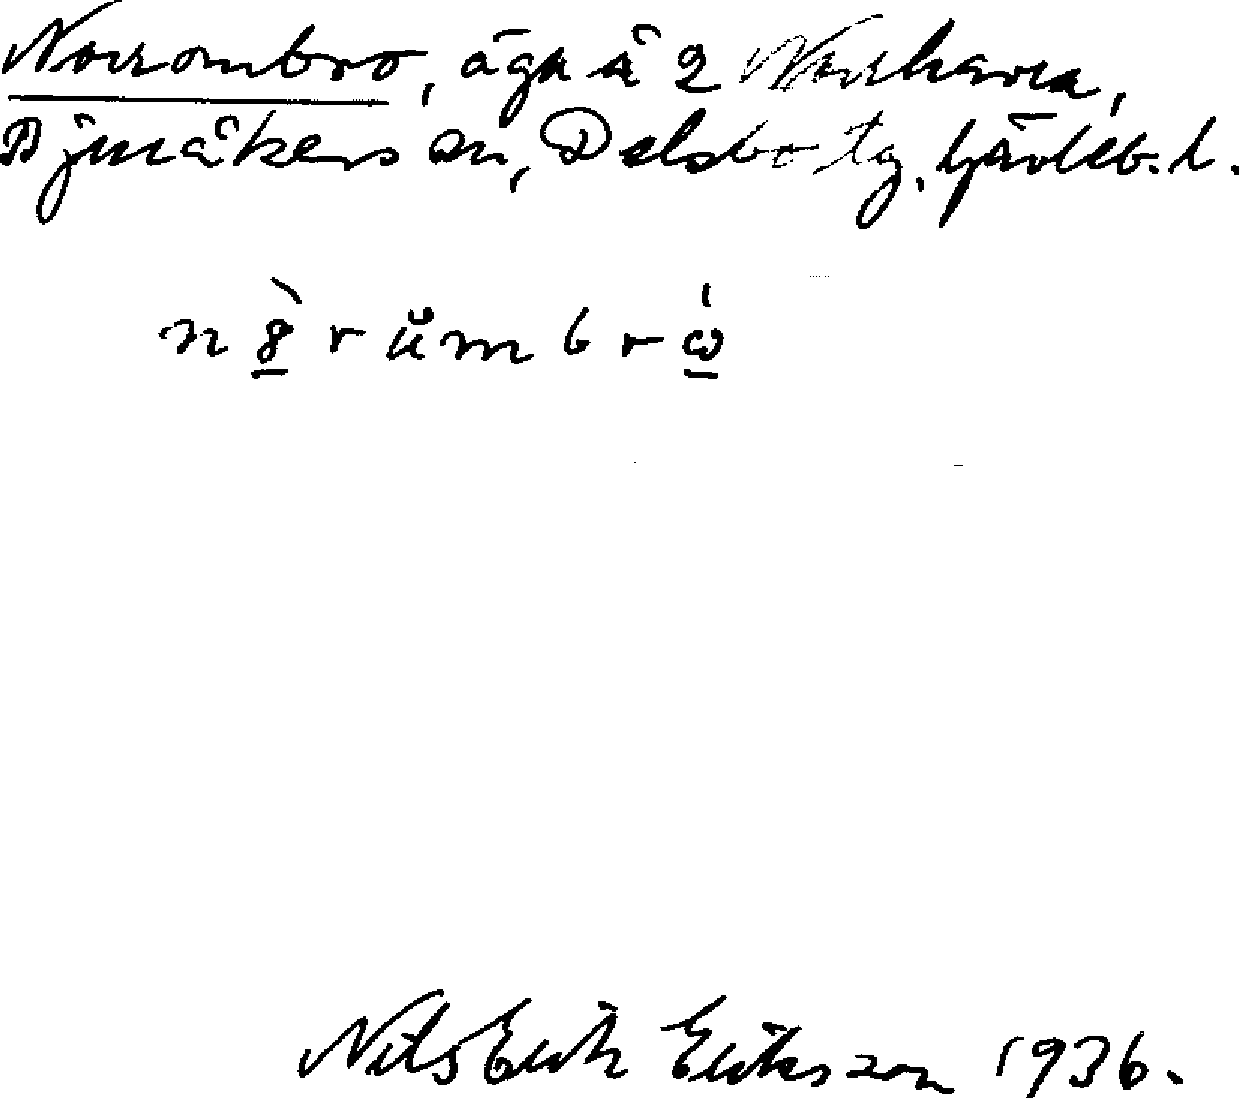 Norrombro, äga å 2 Norrhavra,
Bjuråkers sn, Delsbo tg. Gävleb. l.
n ȣ̀ r ŭ m b r ω̍
Nils Erik Eriksson 1936.